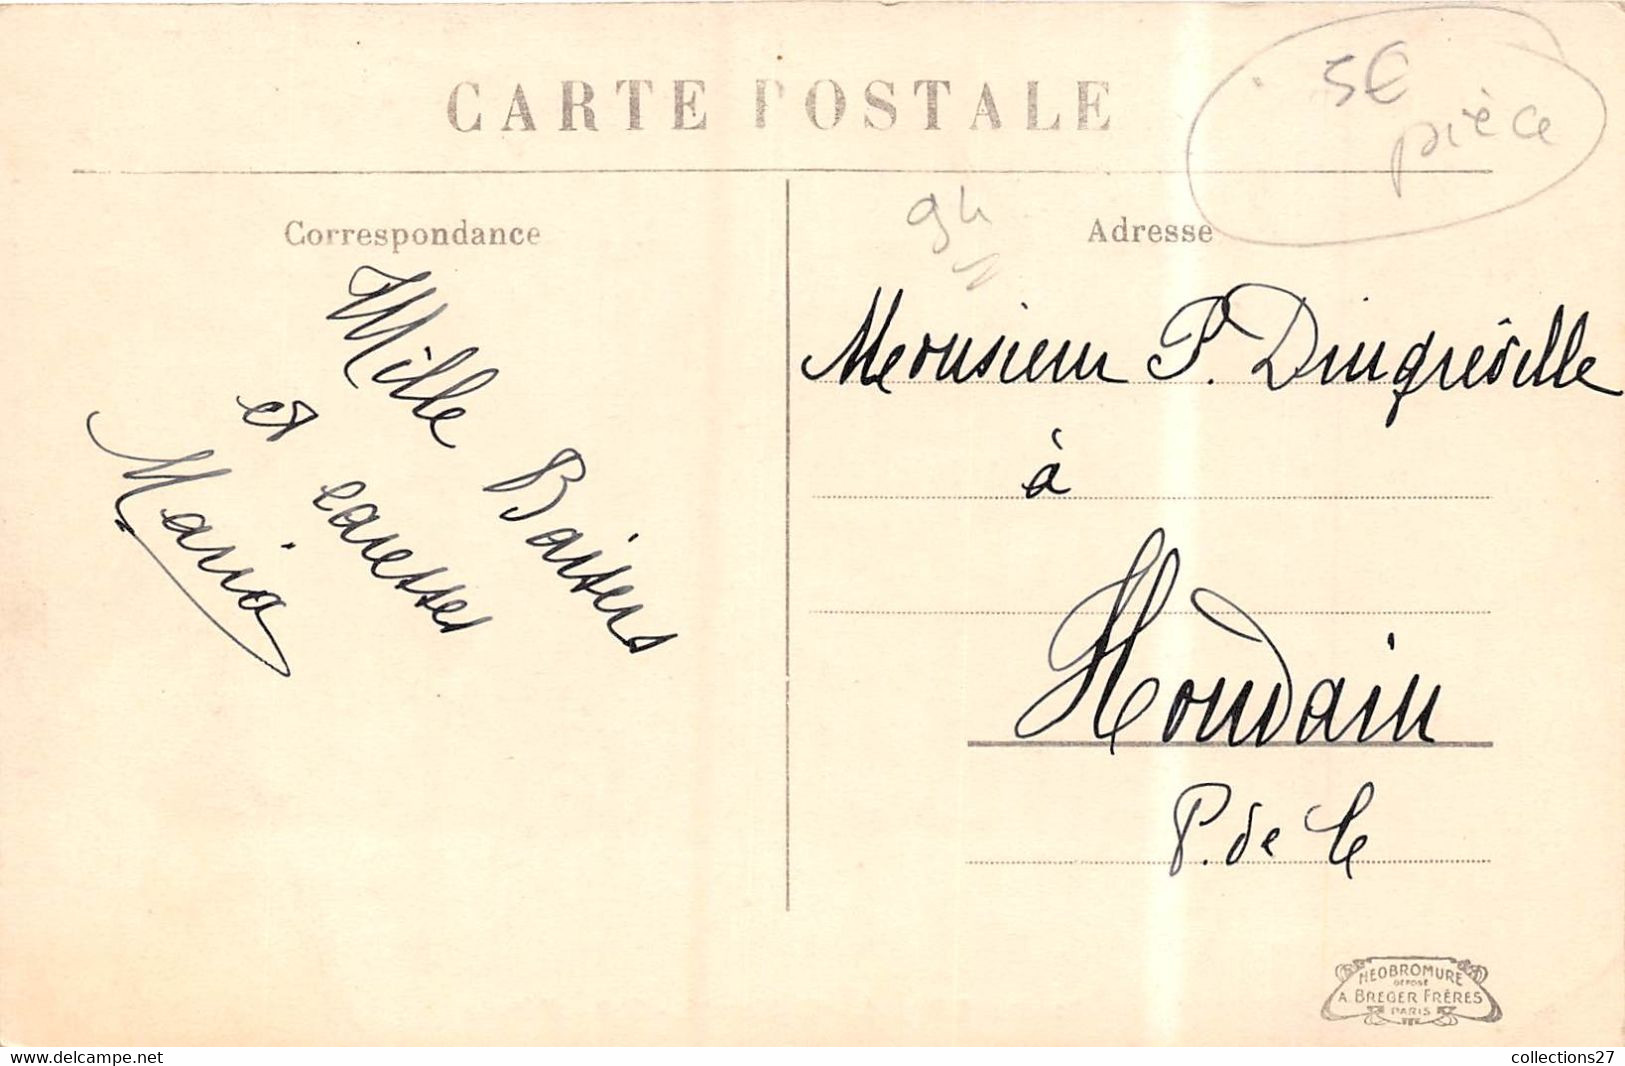 CARTE POSTALE
5€
pièce
94
Correspondance
Adresse
Mille Baisers
et caresses
Maria
Monsieur P. Dingréville
à
Houdain
P. de C
NEOBROMURE
DEPOSÉ
A. BREGER FRÈRES
PARIS
collections27